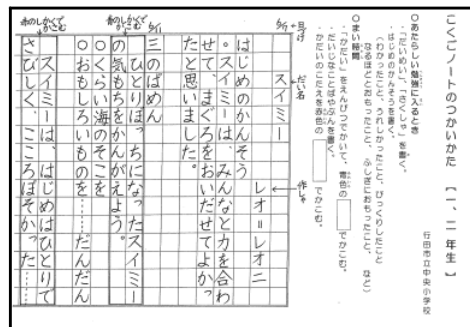 こくごノートのつかいかた 【一、二年生】
行田市立中央小学校
○あたらしい勉強に入るとき
・「だいめい」、「さくしゃ」を書く。
・はじめのかんそうを書く。
(わかったこと、うれしかったこと、びっくりしたこと
なるほどとおもったこと、ふしぎにおもったこと、など)
○まい時間
・「かだい」をえんぴつでかいて、青色の でかこむ。
・だいじなことばやぶんを書く。
・かだいのこたえを赤色の でかこむ。
日づけ
5/11
だい名
スイミー
作しゃ
レオ=レオニ
はじめのかんそう
○スイミーは、みんなと力を合わ
せて、まぐろをおいだせてよかっ
たと思いました。
5/11
三のばめん
青のしかくで
かこむ
ひとりぼっちになったスイミー
の気もちをかんがえよう。
○くらい海のそこを
○おもしろいものを……だんだん
赤のしかくで
かこむ
スイミーは、はじめはひとりで
さびしく、こころぼそかった…